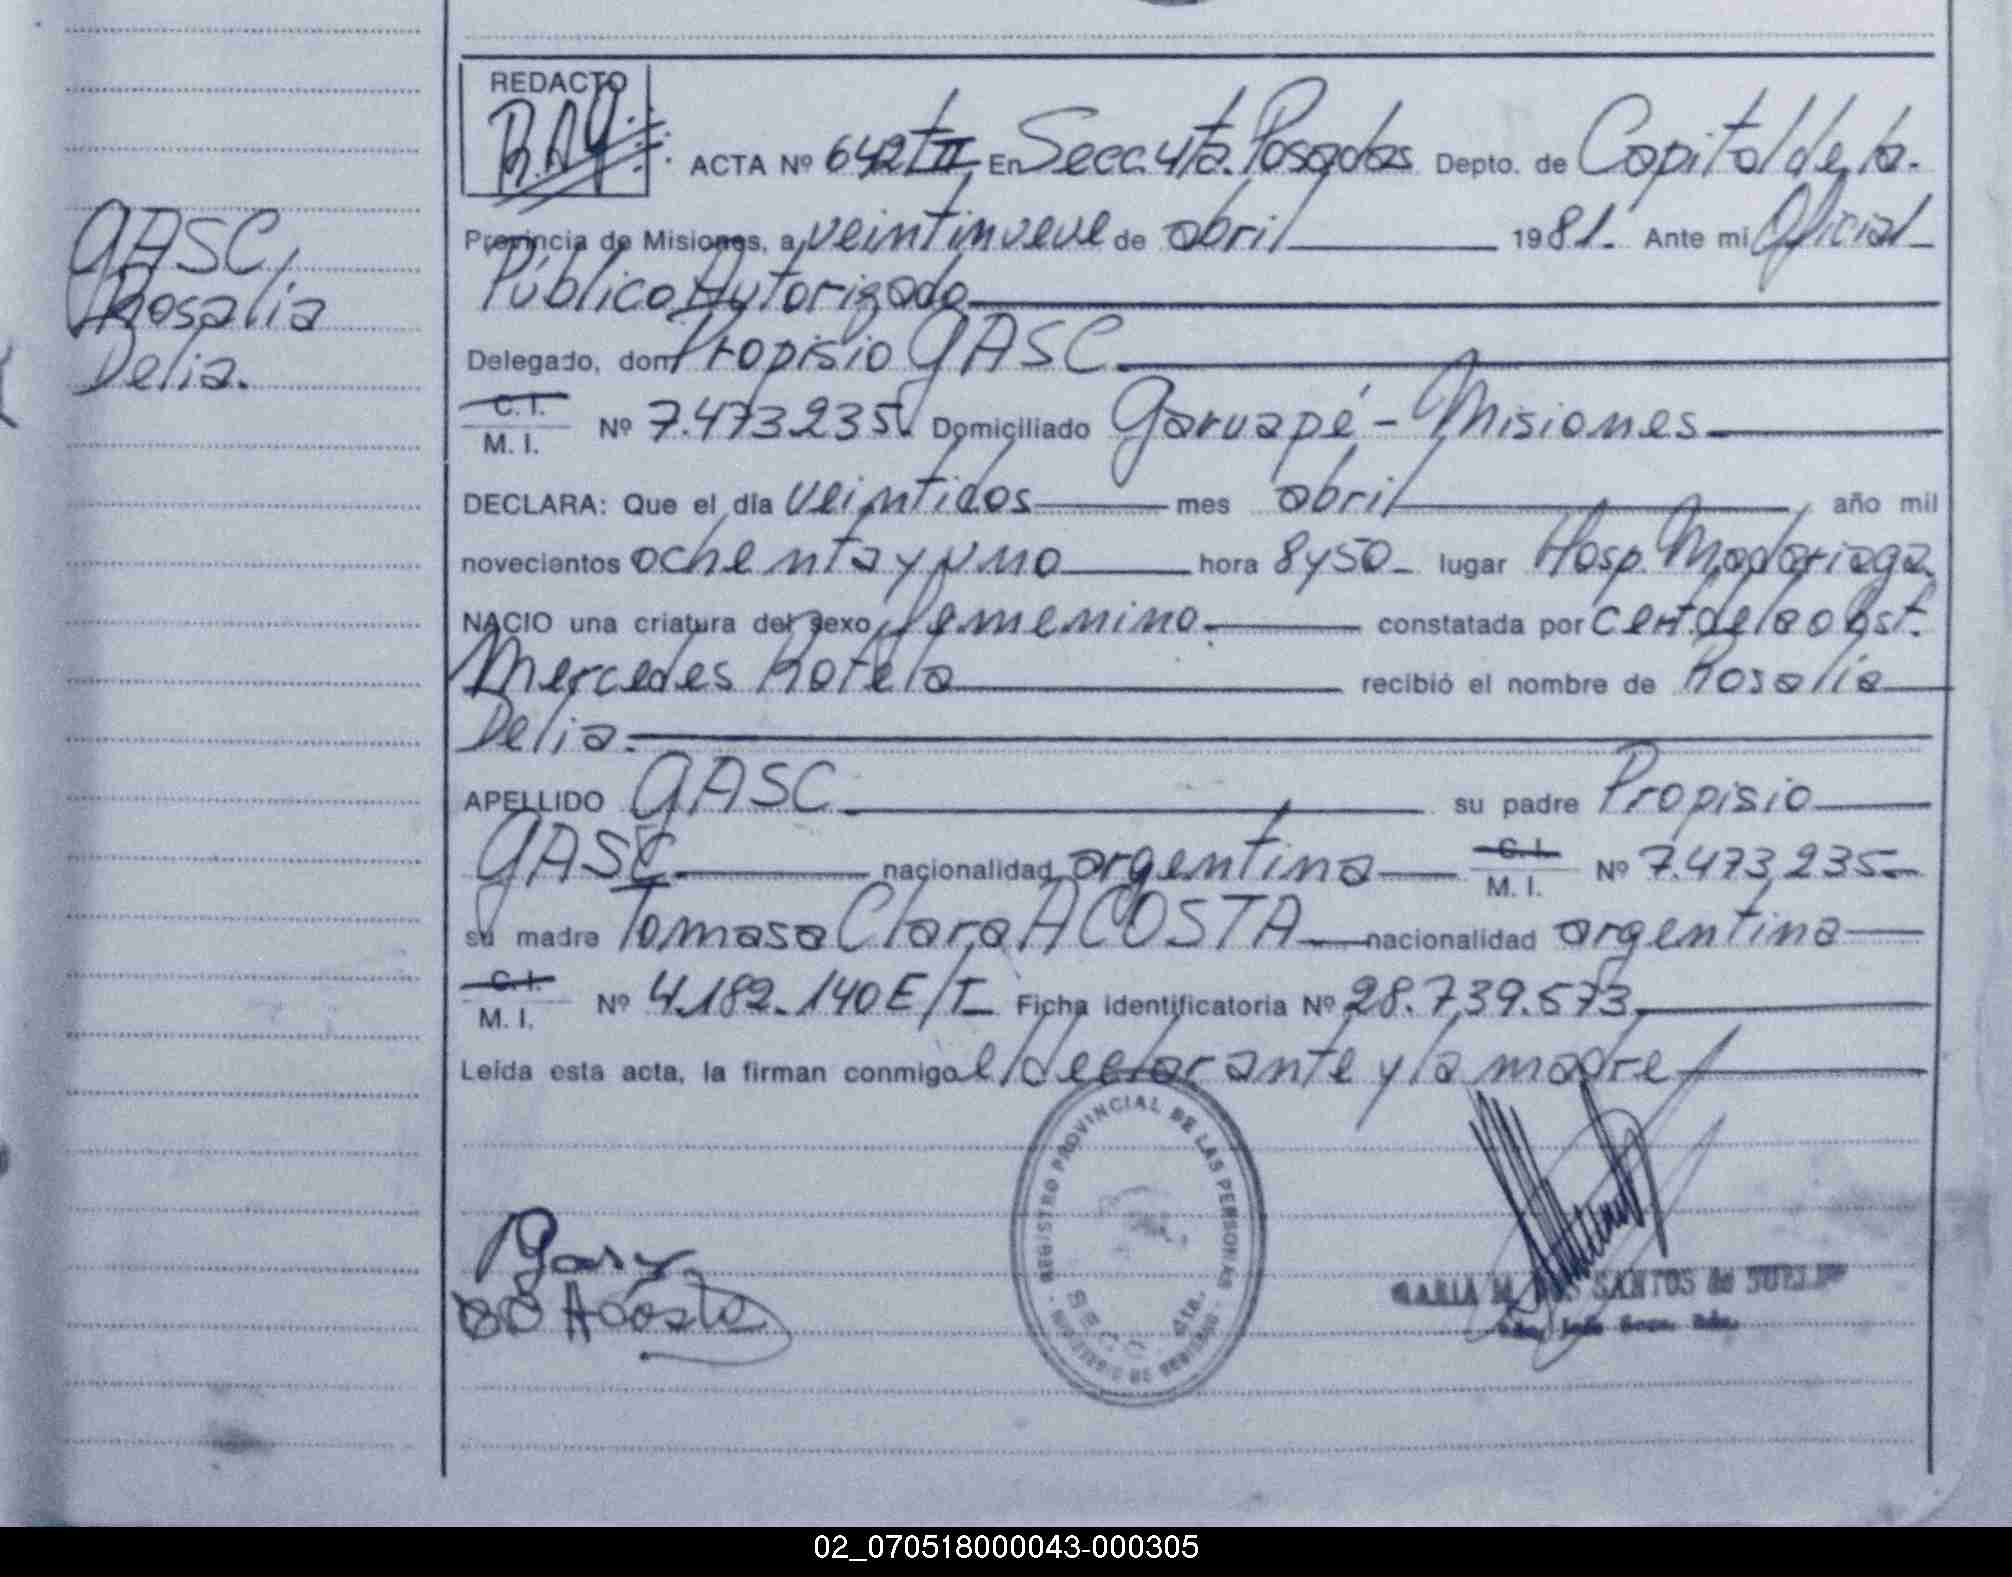 REDACTO
R.A.G.
ACTA Nº 642 t II En Secc. 4ta. Posadas Depto. de Capital de la.
Provincia de Misiones, a veintinueve de abril 1981. Ante mi Oficial
Público Autorizado
Delegado, don Propisio GASC
C. I.
M. I. Nº 7.473.235. Domiciliado Garuapé - Misiones
DECLARA: Que el día veintidos mes abril año mil
novecientos ochenta y uno hora 8y50 lugar Hosp. Madariaga.
NACIO una criatura del sexo femenino. constatada por cert. de la obst.
Mercedes Rotela recibió el nombre de Rosalia
Delia.
APELLIDO GASC su padre Propisio
GASC nacionalidad argentina C. I.
M. I. Nº 7.473.235
su madre Tomasa Clara ACOSTA nacionalidad argentina
C. I.
M. I. Nº 4.182.140 E/T Ficha identificatoria Nº 28.739.573
Leída esta acta, la firman conmigo el declarante y la madre
GASC,
Rosalia
Delia.
Acosta
REGISTRO PROVINCIAL DE LAS PERSONAS
SECC. 4ta.
MINISTERIO DE GOBIERNO
MARIA M. DOS SANTOS de
02_070518000043-000305